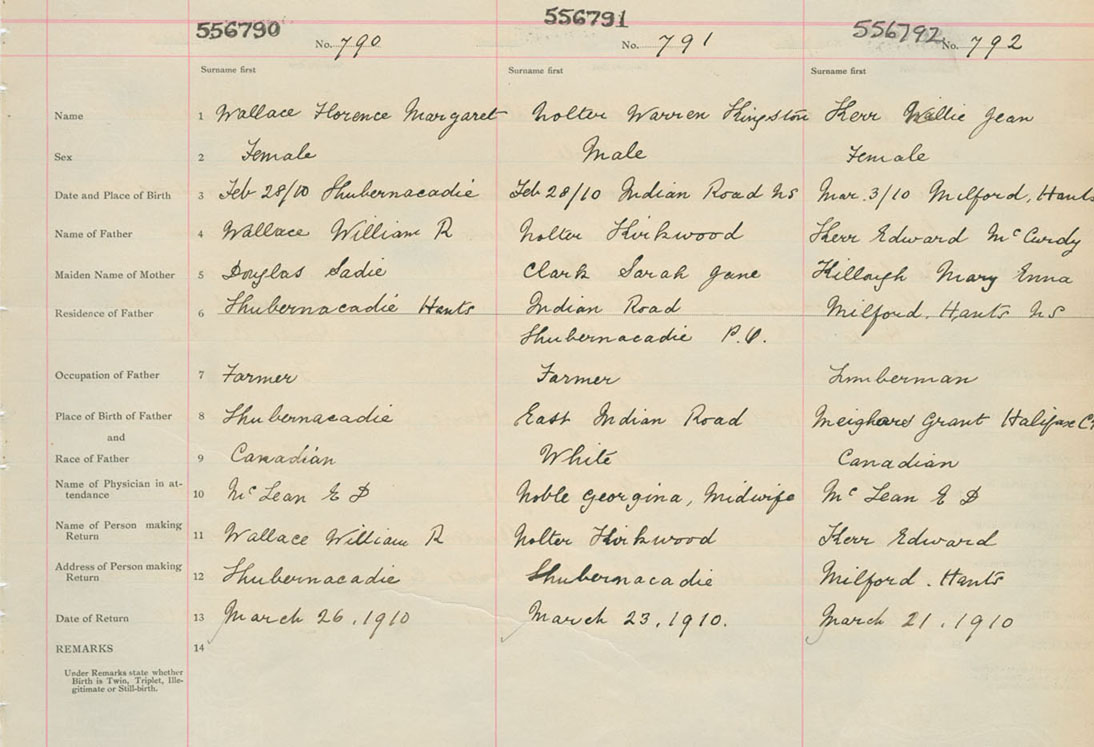 556790 No. 790 556791 No. 791 556792 No. 792
Surname first Surname first Surname first
Name 1 Wallace Florence Margaret Nolter Warren Kingston Kerr Willie Jean
Sex 2 Female Male Female
Date and Place of Birth 3 Feb 28/10 Shubernacadie Feb 28/10 Indian Road NS Mar. 3/10 Milford, Hants
Name of Father 4 Wallace William R Nolter Kirkwood Kerr Edward McCurdy
Maiden Name of Mother 5 Douglas Sadie Clark Sarah Jane Killough Mary Enna
Residence of Father 6 Shubernacadie Hants Indian Road Milford. Hants NS
Shubernacadie P.O.
Occupation of Father 7 Farmer Farmer Lumberman
Place of Birth of Father 8 Shubernacadie East Indian Road Grant Halifax Co
and
Race of Father 9 Canadian White Canadian
Name of Physician in at-
tendance 10 McLean E D Noble Georgina, Midwife McLean E D
Name of Person making
Return 11 Wallace William R Nolter Kirkwood Kerr Edward
Address of Person making
Return 12 Shubernacadie Shubernacadie Milford. Hants
Date of Return 13 March 26, 1910 March 23, 1910. March 21, 1910
REMARKS 14
Under Remarks state whether
Birth is Twin, Triplet, Ille-
gitimate or Still-birth.